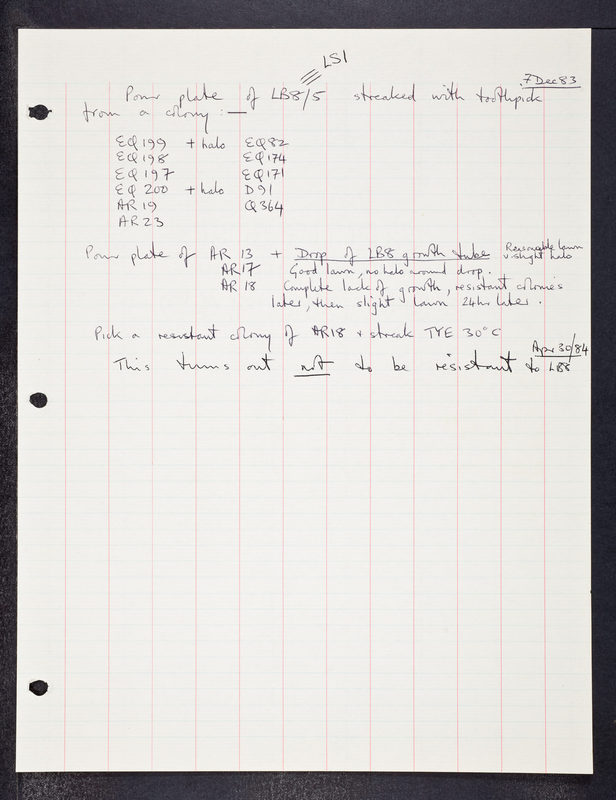 LS1
7 Dec 83
Pour plate of LB8/5 streaked with toothpick
from a colony :—
EQ 199 + halo EQ82
EQ198 EQ174
EQ197 EQ171
EQ 200 + halo D91
AR 19 Q364
AR 23
Pour plate of AR 13 + Drop of LB8 growth tube Reasonable lawn
v. slight halo
AR17 Good lawn, no halo around drop.
AR 18 Complete lack of growth, resistant colonies
later, then slight lawn 24hr later.
Pick a resistant colony of AR18 + streak TYE 30°C
Apr 30/84
This turns out not to be resistant to LB8